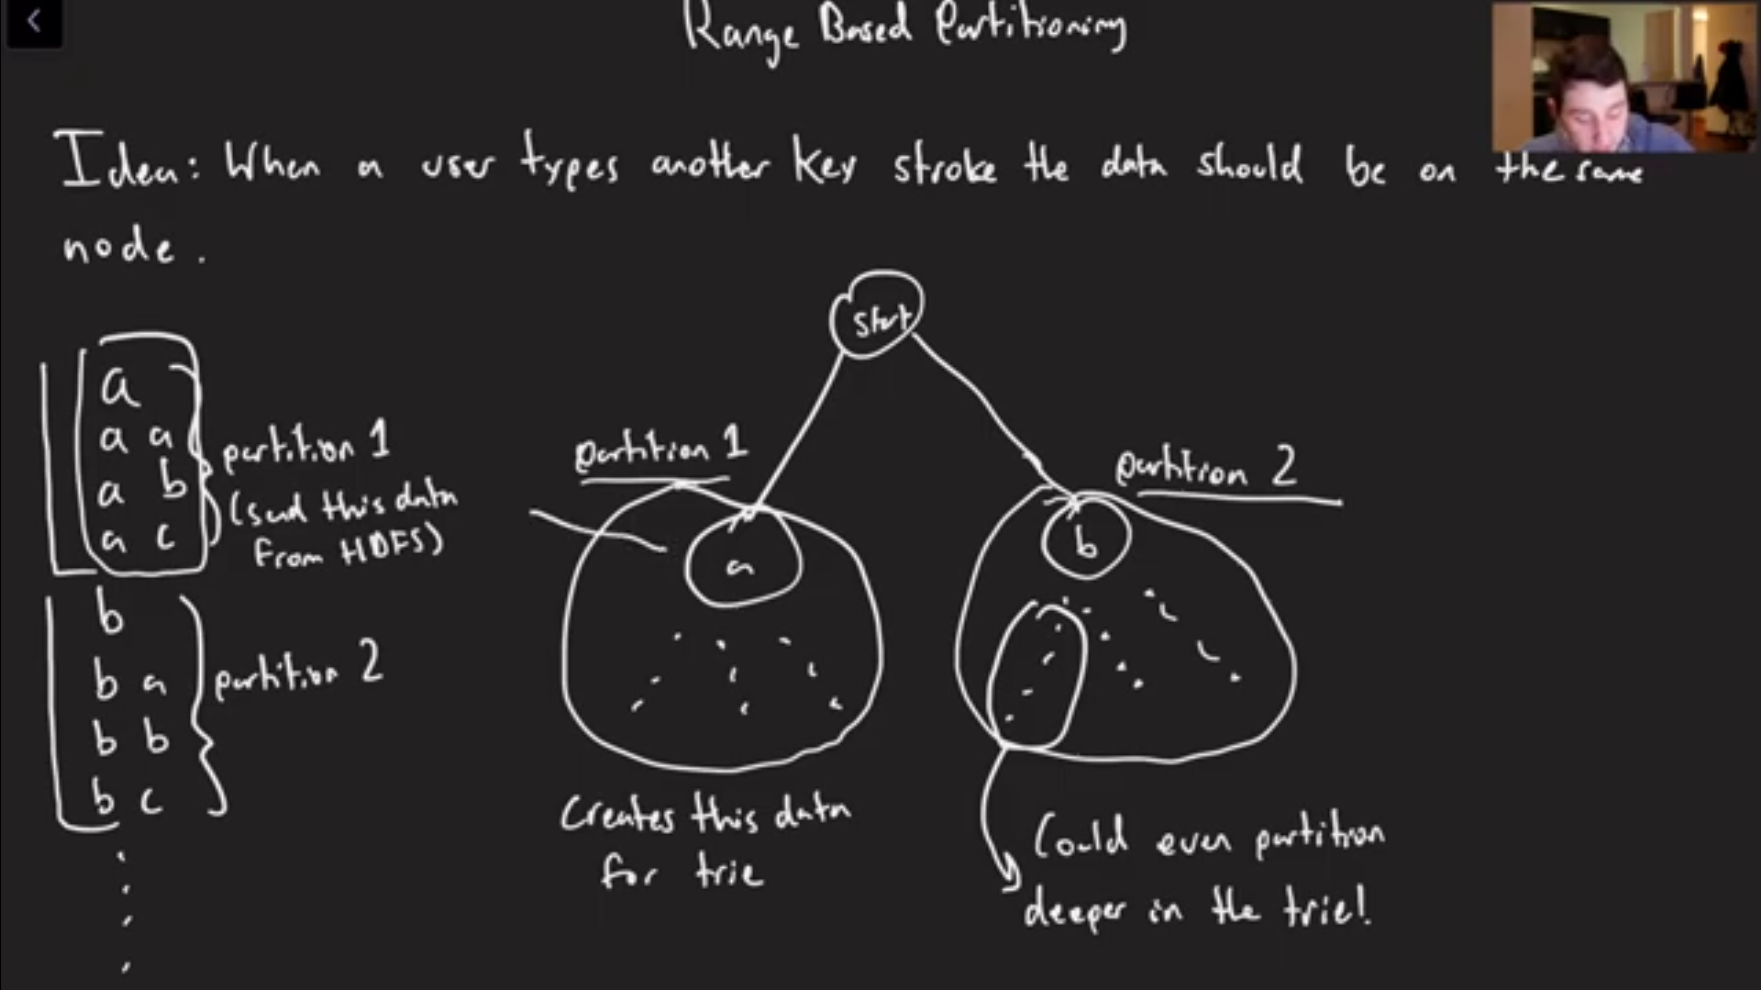 Range Based Partitioning
Idea: When a user types another key stroke the data should be on the same
node.
start
a
a a
a b
a c
partition 1
(send this data
from HDFS)
b
b a
b b
b c
partition 2
partition 1
a
Creates this data
for trie
partition 2
b
Could even partition
deeper in the trie!